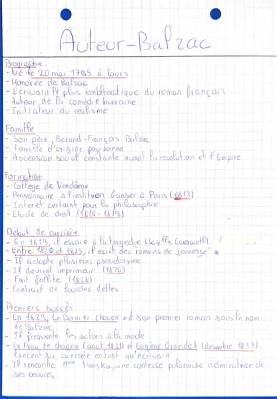 Auteur-Balzac
Biographie
- Né le 20 mai 1799 à Tours
- Honoré de Balzac
- Ecrivain le plus emblématique du roman français
- Auteur de la comédie humaine
- Initiateur du réalisme
Famille
- Son père, Bernard-François Balzac
- Famille d'origine paysanne
- Ascension social constante avant la révolution et l'Empire
Formation
- Collège de Vendôme
- Pensionnaire à l'institution à Paris (1813)
- Interet certaint pour la philosophie
- Etude de droit (1816-1819)
Début de carrière
- En 1819, il essaie à la tragédie
- Entre et 1825, il écrit des romans de jeunesse
- Il adopte plusieurs pseudonyme
- Il devient imprimeur (1826)
- Fait faillite (1828)
- Contracte de lourdes dettes
Premiers succès
- En 1829, Le Dernier Chouan est son premier roman sous le nom
de Balzac
- Il frequente les salons à la mode
- La Peau de chagrin (août 1831) et Eugénie Grandet (décembre 1833)
lancent sa carrière entant qu'écrivain
- Il rencontre Mme Hanska, une comtesse polonaise admiratrice de
ses œuvres